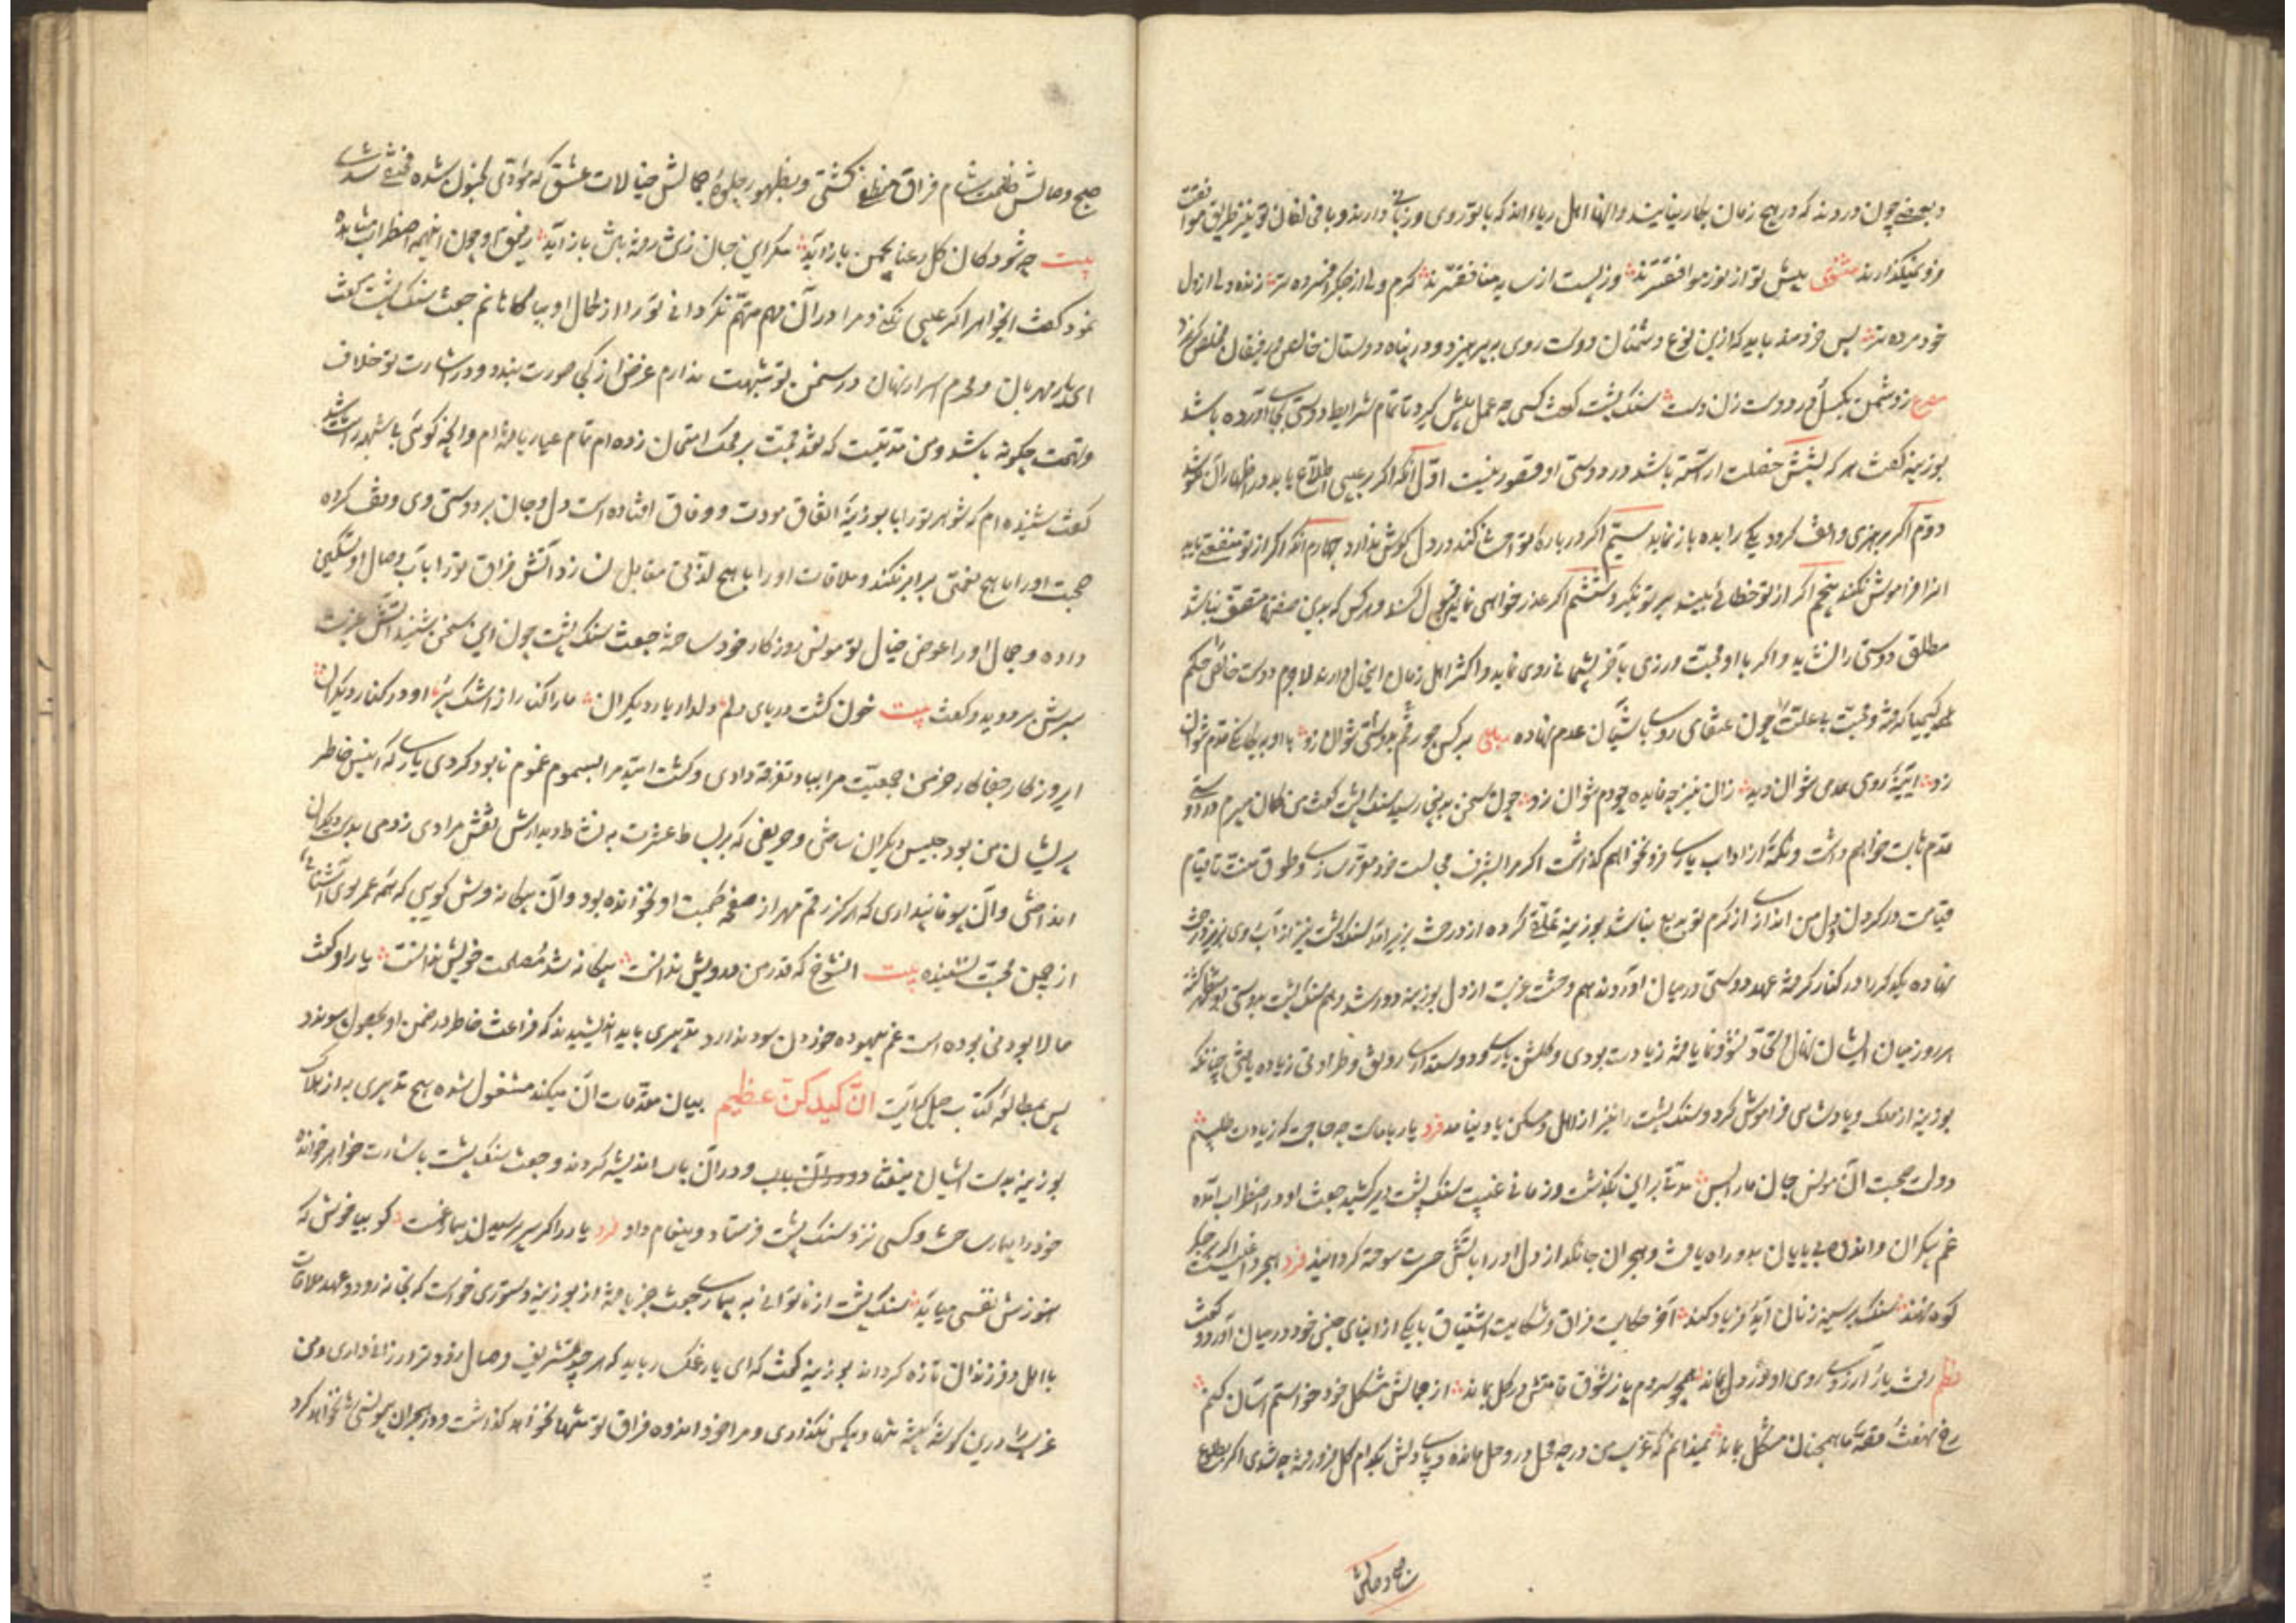 و بعضی چون دردند که در هیچ زمان بکار نیایند و آنها اهل ریاء اند که با تو روی و زبانی دارند و با مخالفان تو نیز طریق موافقت
فرو نمیگذارند مثنوی پیش تو از نور موافقترند وز پست از سایه منافقترند گرم ولی از جگر افسرده تر زنده ولی از دل
خود مرده تر پس خردمند باید که ازین نوع دشمنان دوست روی بپرهیزد و در پناه دوستان خالص و رفیقان مخلص گریزد
مصرع ز دشمن بگسل و در دوست زن دست سنک پشت گفت کسی چه عمل پیش گیرد تا تمام شرایط دوستی بجای آورده باشد
بوزینه گفت هر که بشش خصلت آراسته باشد در دوستی او قصور نیست اول آنکه اگر بر عیبی اطلاع یابد در اظهار آن نکوشد
دوم اگر بر هنری واقف گردد یکی را بده باز نماید سیم اگر در باره تو احسان کند در دل نکوش ندارد چهارم آنکه اگر از تو منفعتی یابد
آنرا فراموش نکند پنجم اگر از تو خطائی بیند بر تو نگیرد ششم اگر عذر خواهی نماید قبول کند و هر کس که بدین صفتها متصف نباشد
مطلق دوستی را نشاید و اگر با او محبت ورزی بآخر پشیمانی روی نماید و اکثر اهل زمان این حال دارند لاجرم دوست خالص حکم
کیمیا گرفته و محبت بی علت چون عنقای روی بآشیان عدم نهاده رباعی بر کس چو رقم بدوستی نتوان زد با او به یگانگی قدم نتوان
زد آیینه روی همدمی نتوان دید زان نیز چه فایده چو دم نتوان زد چون سخن بدینجا رسید سنک پشت گفت من گمان میبرم که در دوستی
قدم ثابت خواهم داشت و نکته از آداب یاری فرو نخواهم گذاشت اگر مرا بشرف مجالست خود معزز سازی و طوق منت تا قیام
قیامت در گردن دل من اندازی از کرم تو بدیع نباشد بوزینه تملق کرده از درخت بزیر آمد سنک پشت نیز از آب روی بزیر درخت
نهاده یکدیگر را در کنار گرفته عهد دوستی در میان آوردند هم وحشت غربت از دل بوزینه دور شد و هم سنک پشت بدوستی او مستظهر گشته
هر روز میان ایشان نهال اتحاد نشو و نما یافته زیادت بودی و گلشن یاری و دوستداری رونق و طراوتی زیاده یافتی چنانکه
بوزینه از ملک و پادشاهی فراموش کرد و سنک پشت را نیز از اهل و مسکن یاد نیامد فرد یار با ماست چه حاجت که زیادت طلبیم
دولت صحبت آن مونس جان ما را بس مدتی برین بگذشت و زمانی غیبت سنک پشت دیر کشید جفت او در اضطراب آمده
غم بیکران و اندوه بی پایان بدو راه یافت و هجران جانگداز دل او را بآتش حسرت سوخته گردانید فرد هجر داغیست اگر بر جگر
کوه نهند سنک بر سینه زنان آید و فریاد کند آخر حکایت فراق و شکایت اشتیاق با یکی از ابنای جنس خود در میان آورد و گفت
نظم رفت یار آرزوی روی او در دل بماند همچو سروم پا ز شوق قامتش در گل بماند از جمالش مشکل خود خواستم آسان کنم
رخ نهفت و قصه ما همچنان مشکل بماند نمیدانم که غریب من در چه محل در وحل مانده و پای دلش بکدام گل فرو رفته چه شدی اگر بطلوع
صبح وصالش
صبح وصالش ظلمت شام فراق منطفی گشتی و بظهور جلوه جمالش خیالات عشق که مودی بجنون شده مختفی شدی
بیت چه شود کان گل رعنا بچمن باز آید مگر این جان زتن رفته بتن باز آید رفیق او چون این همه اضطراب مشاهده
نمود گفت ای خواهر اگر عیبی نکنی و مرا در آن مهم متهم نگردانی تو را از حال او بیاگاهانم جفت سنک پشت گفت
ای یار مهربان و محرم اسرار نهان در سخن تو شبهت ندارم غرض از کجی صورت بندد و در اشارت تو خلاف
و تهمت چگونه باشد و من مدتیست که نقد محبت بر محک امتحان زده ام تمام عیار یافته ام و آنچه گوئی باستظهار راست باشد
گفت شنیده ام که شوهر تو را با بوزینه اتفاق مودت و وفاق افتاده است دل و جان بر دوستی وی وقف کرده
صحبت او را با هیچ نعمتی برابر نکند و ملاقات او را با هیچ لذتی مقابل نسازد آتش فراق تو را بآب وصال او تسکینی
داده و جمال او را عوض خیال تو مونس روزگار خود ساخته جفت سنک پشت چون این سخن بشنید آتش غیرت
بسرش بر دوید و گفت بیت خون گشت دریای دلم دلدار یار دیگران ما را کنار از اشک پر او در کنار دیگران
ای روزگار جفاکار خرمن جمعیت مرا بباد تفرقه دادی و کشت امید مرا بسموم غموم نابود کردی یاری که انیس خاطر
پریشان من بود جلیس دیگران ساختی و حریفی که بر بساط عشرت بنشاط دیدارش نقش مرادی زدمی بدست دیگران
انداختی و آن بیوفا پنداری که هرگز رقم مهر از صفحه محبت او نخوانده بود و آن بیگانه وش گویی که همه عمر بوی آشنائی
از چمن محبت نشنیده بیت آن شوخ که قدر من درویش ندانست بیگانه شد مصلحت خویش ندانست یار او گفت
حالا بودنی بوده است غم بیهوده خوردن سود ندارد تدبیری باید اندیشید که فراغت خاطر در ضمن او بحصول پیوندد
پس بمطالعه کتاب حیل که آیت انّ کیدکنّ عظیم بیان مقدمات آن میکند مشغول شده هیچ تدبیری به از هلاک
بوزینه بدست ایشان نیفتاد و در آن باب اندیشه کردند و جفت سنک پشت باشارت خواهر خوانده
خود را بیمار ساخت و کسی نزد سنک پشت فرستاد و پیغام داد فرد یار را گر سر پرسیدن بیمار غمست گو بیا خوش که
هنوزش نفسی میآید سنک پشت از ناتوانی و بیماری جفت خبر یافته از بوزینه دستوری خواست که بخانه رود و عهد ملاقات
با اهل و فرزندان تازه گرداند بوزینه گفت که ای یار غمگسار باید که هر چند تشریف وصال زودتر ارزانی داری و من
غریب را درین گوشه بیشه تنها و بیکس نگذاری و مرا خود اندوه فراق تو تنها نخواهد گذاشت و در هجران مونس نخواهد کرد